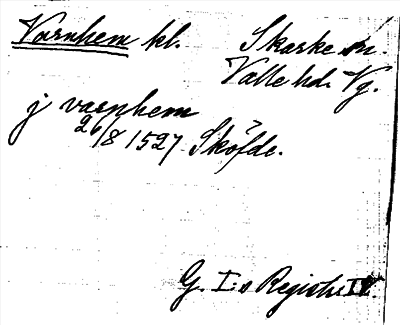 Varnhem kl. Skarke sn.
Valle hd. Vg.
j varnhem
26/8 1527 Sköfde.
G. I:s Registr. IV.